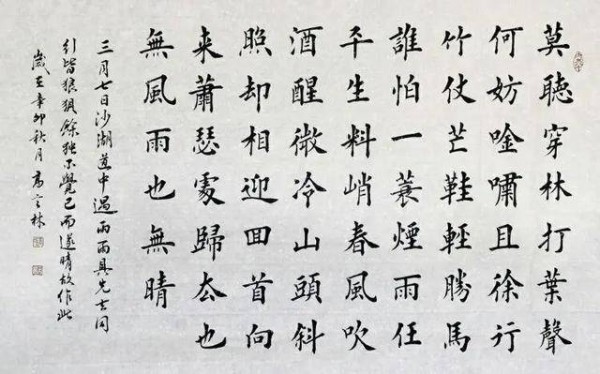 莫聽穿林打葉聲
何妨唫嘯且徐行
竹仗芒鞋輕勝馬
誰怕一蓑煙雨任
平生料峭春風吹
酒醒微冷山頭斜
照却相迎回首向
来蕭瑟處歸厺也
無風雨也無晴
三月七日沙湖道中遇雨雨具先去同
行皆狼狽餘獨不覺已而遂晴故作此
歲在辛卯秋月高林